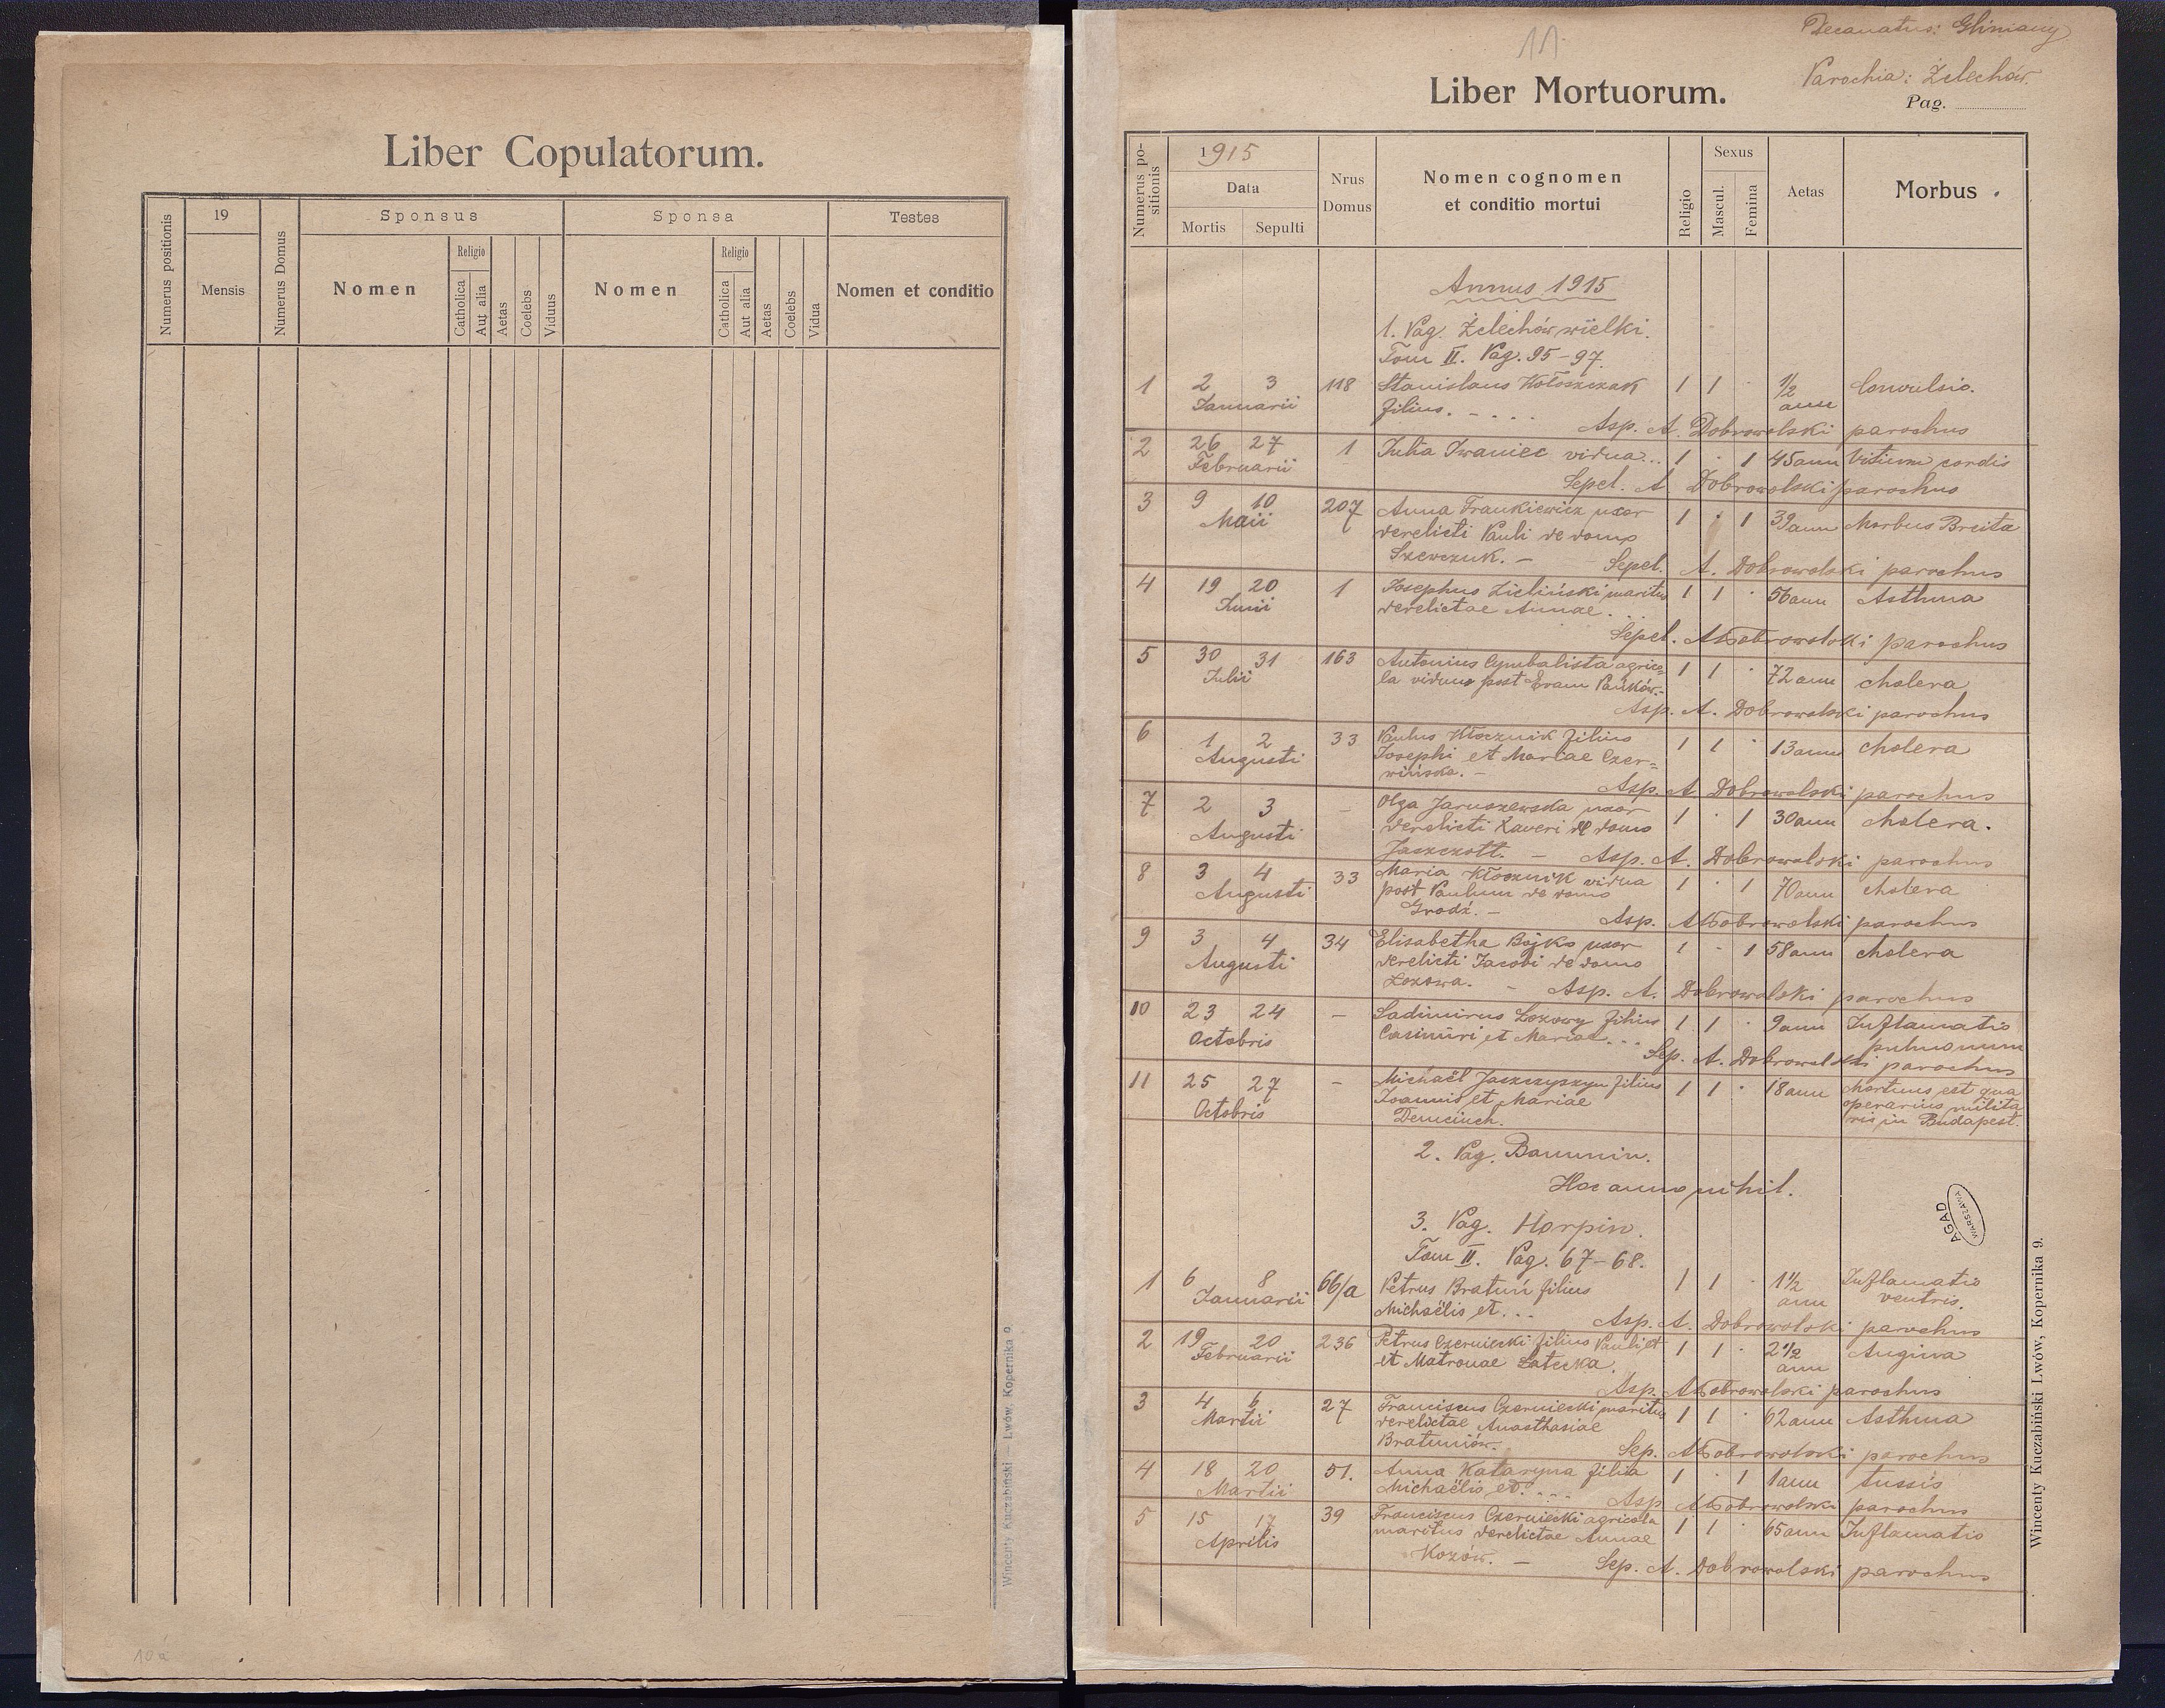 Liber Copulatorum.
Numerus positionis
19
Mensis
Numerus Domus
Sponsus
Nomen
Religio
Catholica
Aut alia
Aetas
Coelebs
Viduus
Sponsa
Nomen
Religio
Catholica
Aut alia
Aetas
Coelebs
Vidua
Testes
Nomen et conditio
Wincenty Kuczabiński — Lwów, Kopernika 9
10a
11
Decanatus: Gliniany
Parochia: Żelechów.
Liber Mortuorum.
Pag.
Numerus po-
sitionis
1915
Data
Mortis Sepulti
Nrus
Domus
Nomen cognomen
et conditio mortui
Religio
Sexus
Mascul.
Femina
Aetas
Morbus
Annus 1915
1. Pag. Żelechów wielki.
Tom II. Pag. 95-97.
1 2 3 118 Stanislaus Kołoszczak 1 1 1/2 Convulsio.
Januarii filius. ann
Asp. A. Dobrowolski parochus
2 26 27 1 Julia Iwaniec vidua.. 1 1 45 ann Vitium cordis
Februarii
Sepel. A. Dobrowolski parochus
3 9 10 207 Anna Frankiewicz uxor 1 1 39 ann Morbus Breita
Maii derelicti Pauli de domo
Szewczuk. — Sepel. A. Dobrowolski parochus
4 19 20 1 Josephus Zieliński maritus 1 1 56 ann Asthma
Junii derelictae Annae.
Sepel. A. Dobrowolski parochus
5 30 31 163 Antonius Cymbalista agrico= 1 1 72 ann cholera
Julii la viduus post Evam Pańków.-
Asp. A. Dobrowolski parochus
6 1 2 33 Paulus Kłocznik filius 1 1 13 ann cholera
Augusti Josephi et Mariae Czer=
wińska. —
Asp. A. Dobrowolski parochus
7 2 3 - Olga Jaruszewska uxor 1 1 30 ann cholera.
Augusti derelicti Xaveri de domo
Jaszczołt. — Asp. A. Dobrowolski parochus
8 3 4 33 Maria Kłocznik vidua 1 1 70 ann cholera
Augusti post Paulum de domo
Grodź. — Asp. A. Dobrowolski parochus
9 3 4 34 Elisabetha Bojko uxor 1 1 58 ann cholera
Augusti derelicti Jacobi de domo
Łozowa. — Asp. A. Dobrowolski parochus
10 23 24 - Ladimirus Łozowy filius 1 1 9 ann Inflamatio
Octobris Casimiri et Mariae... pulmonum
Sep. A. Dobrowolski parochus
11 25 27 - Michaël Jaszczyszyn filius 1 1 18 ann Mortuus est qua
Octobris Joannis et Mariae operarius milita
ris in Budapest.
2. Pag. Banunin.
Hoc anno nihil.
AGAD
WARSZAWA
3. Pag. Horpin.
Tom II. Pag. 67-68.
1 6 8 66/a Petrus Bratuń filius 1 1 1 1/2 Inflamatio
Januarii Michaëlis et... ann ventris.
Asp. A. Dobrowolski parochus
2 19 20 236 Petrus Czerniecki filius Pauli et 1 1 2 1/2 Angina
Februarii et Matronae Łatecka. ann
Asp. A. Dobrowolski parochus
3 4 6 27 Franciscus Czerniecki maritus 1 1 62 ann Asthma
Martii derelictae Anasthasiae
Bratuniów. Sep. A. Dobrowolski parochus
4 18 20 51. Anna Kataryna filia 1 1 1 ann tussis
Martii Michaëlis et....
Asp. A. Dobrowolski parochus
5 15 17 39 Franciscus Czerniecki agricola 1 1 65 ann Inflamatio
Aprilis maritus derelictae Annae
Kozów. — Sep. A. Dobrowolski parochus
Wincenty Kuczabiński Lwów, Kopernika 9.